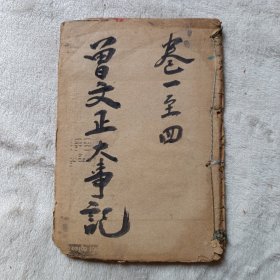 卷一至四
曾文正大事記